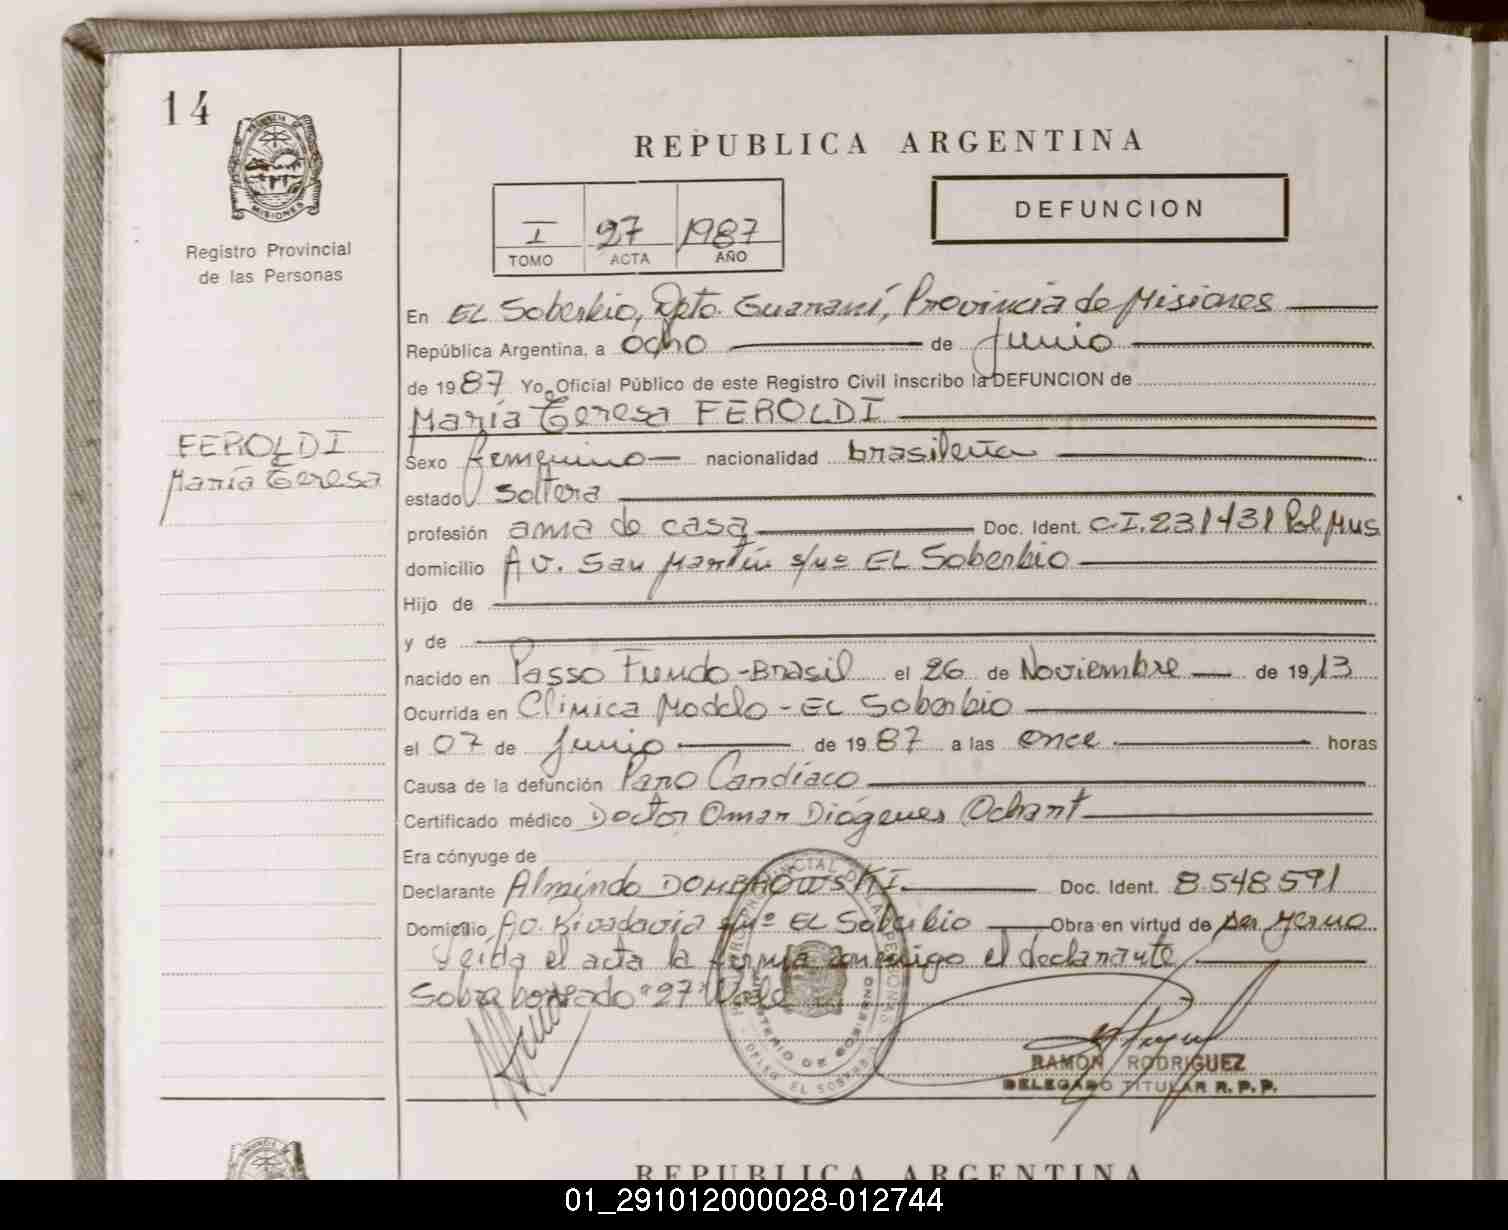 14
PROVINCIA DE
MISIONES
Registro Provincial
de las Personas
FEROLDI
María Teresa
REPUBLICA ARGENTINA
I 27 1987
TOMO ACTA AÑO
DEFUNCION
En EL Soberbio, Dpto. Guaraní, Provincia de Misiones
República Argentina, a ocho de junio
de 1987 Yo, Oficial Público de este Registro Civil inscribo la DEFUNCION de
María Teresa FEROLDI
Sexo femenino nacionalidad brasileña
estado soltera
profesión ama de casa Doc. Ident. C.I. 231431 Pol. Mns
domicilio Av. San Martín s/nº EL Soberbio
Hijo de
y de
nacido en Passo Fundo - Brasil el 26 de Noviembre de 1913
Ocurrida en Clínica Modelo - EL Soberbio
el 07 de junio de 1987 a las once horas
Causa de la defunción Paro Cardíaco
Certificado médico Doctor Omar Diógenes Ochant
Era cónyuge de
Declarante Almindo DOMBROWSKI. Doc. Ident. 8.548.591
Domicilio Av. Rivadavia s/nº EL Soberbio Obra en virtud de ser yerno
Leída el acta la firma conmigo el declarante
Sobre borrado "27" Vale
RAMON RODRIGUEZ
DELEGADO TITULAR R.P.P.
REPUBLICA ARGENTINA
01_291012000028-012744